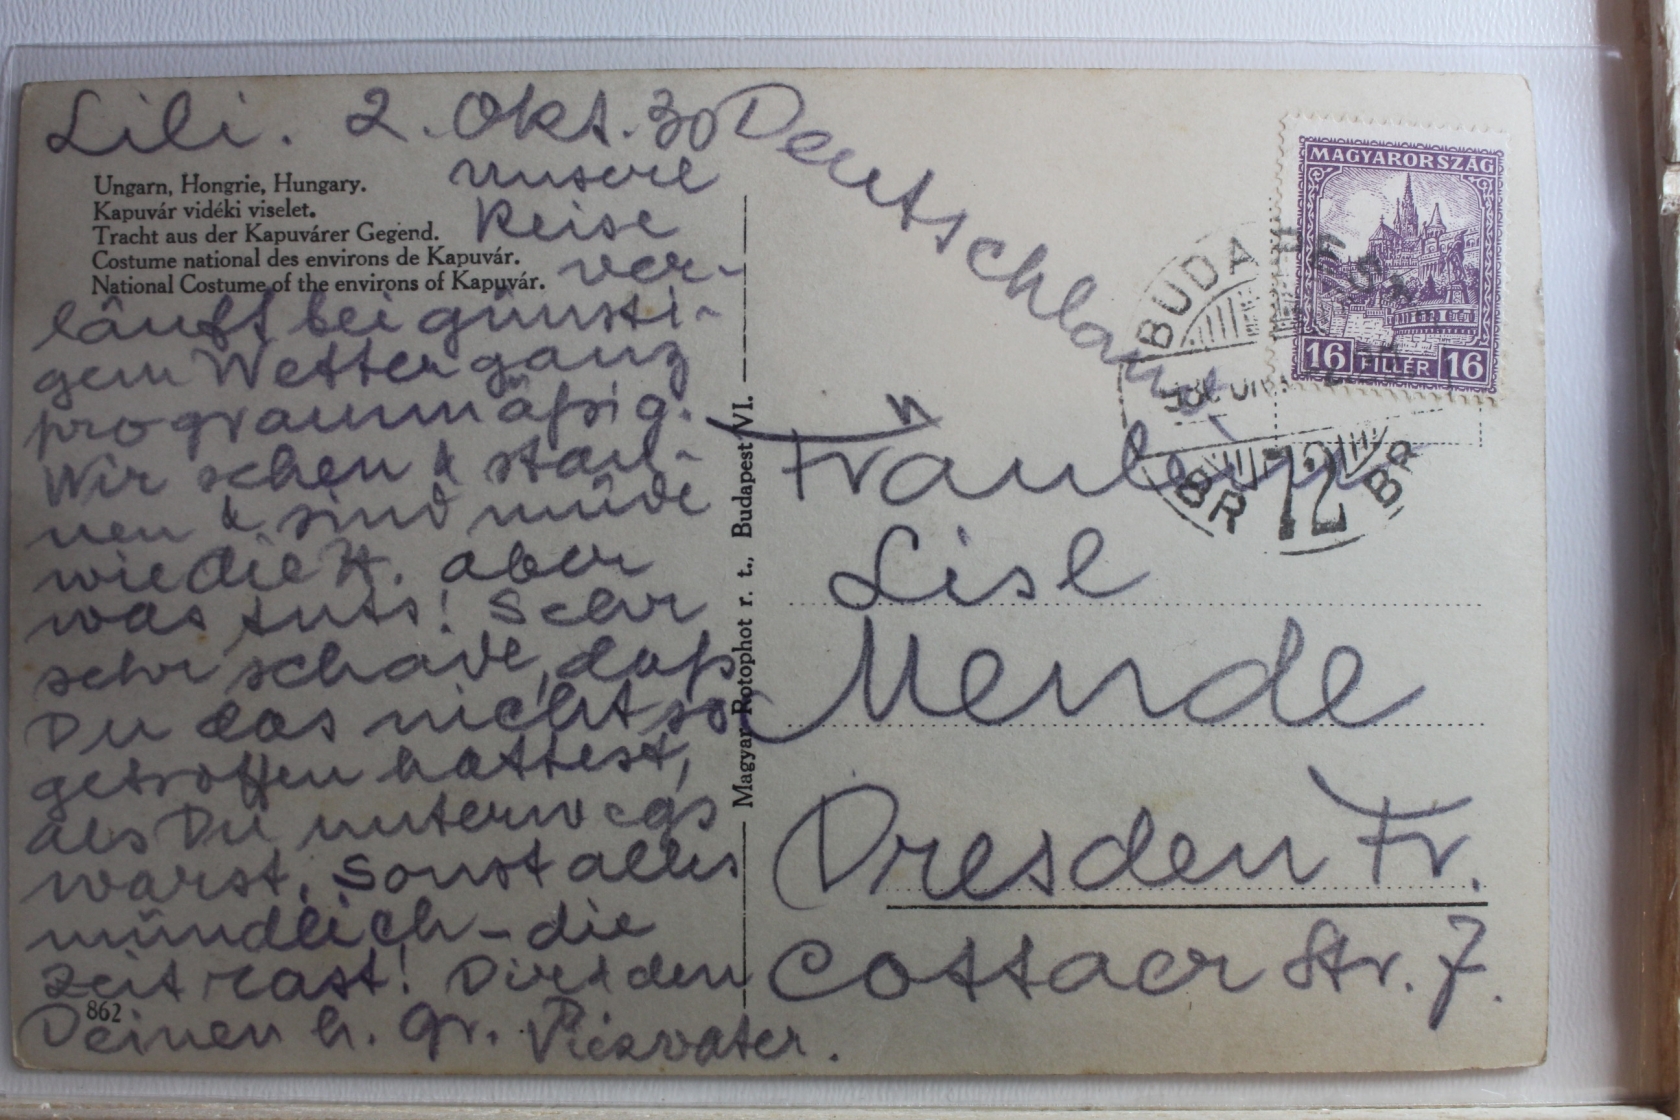 Lili. 2. Okt. 30
Ungarn, Hongrie, Hungary.
Kapuvár vidéki viselet.
Tracht aus der Kapuvárer Gegend.
Costume national des environs de Kapuvár.
National Costume of the environs of Kapuvár.
unsere
Reise
ver-
läuft bei günsti-
gem Wetter ganz
programmäßig.
Wir sehen & stau-
nen & sind müde
wie die H. aber
was tuts! Sehr
sehr schade, daß
Du das nicht so
getroffen hattest,
als Du unterwegs
warst. Sonst alles
mündlich - die
Zeit rast! Dir & den
Deinen h. Gr.
862
Magyar Rotophot r. t., Budapest VI.
Deutschland
MAGYARORSZÁG
16 FILLÉR 16
BUDA
BR 72 BR
Fräulein
Lisl
Mende
Dresden Fr.
Cottaer Str. 7.